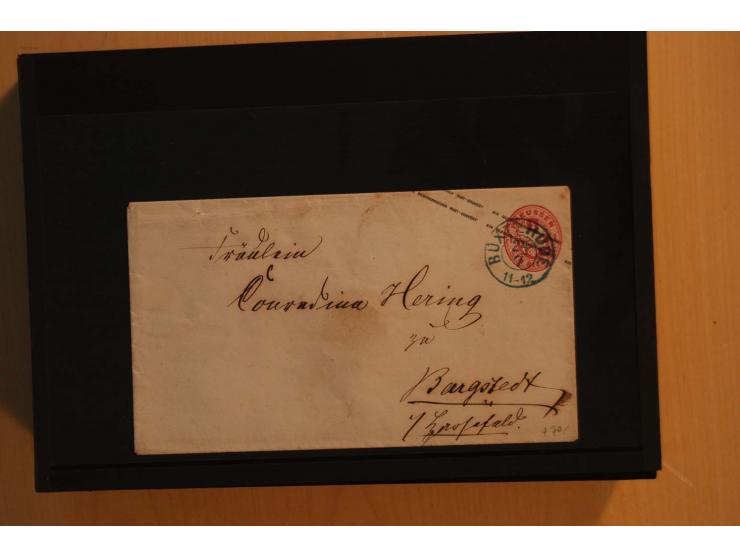 PREUSSEN
BUXTEHUDE
11-12
Fräulein
Conradina Hering
zu
Bargstedt